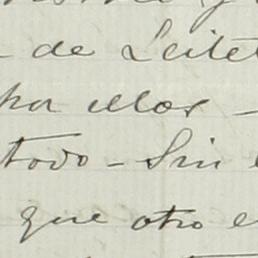 de Leite
por ellos -
todo - Sin
que otro e